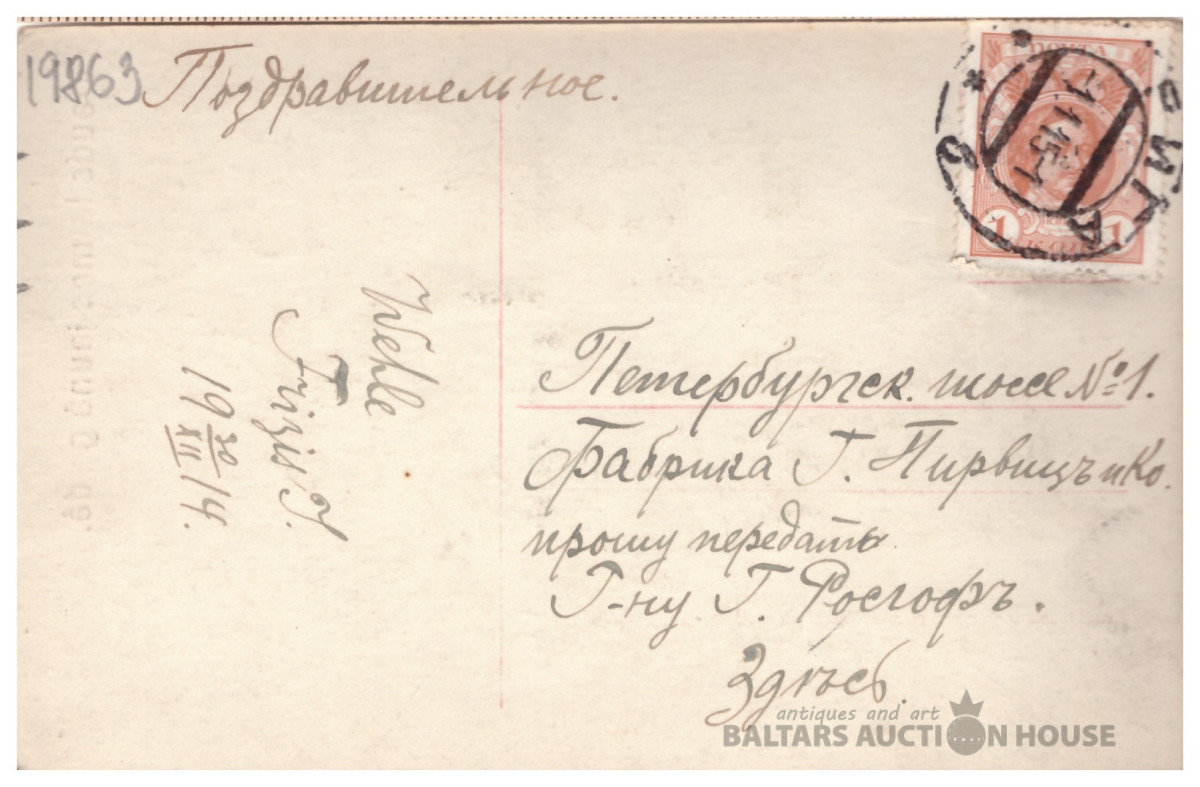 19863
Поздравительное.
ПОЧТА
РИГА
1 1 15
1 1
Wehle
Frizis J.
19 30/XII 14.
Петербургск. шоссе № 1.
Фабрика Г. Пирвицъ и Ко.
прошу передать
Г-ну Г. Росгофъ.
Здѣсь.
antiques and art
BALTARS AUCTION HOUSE